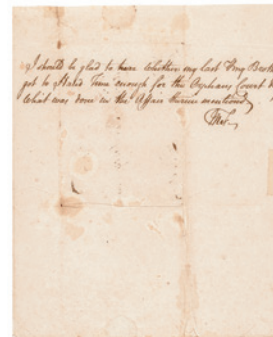 I should be glad to have whether my last
got to Hand Time enough for the Orphans Court
what was done in the Affair herein mentioned